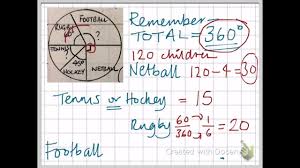 FOOTBALL
RUGBY
60°
?
TENNIS
?
45°
HOCKEY
NETBALL
Remember
TOTAL = 360°
120 children
Netball 120÷4=30
Tennis or Hockey = 15
Rugby 60/360 → 1/6 = 20
Football
Created with Doceri